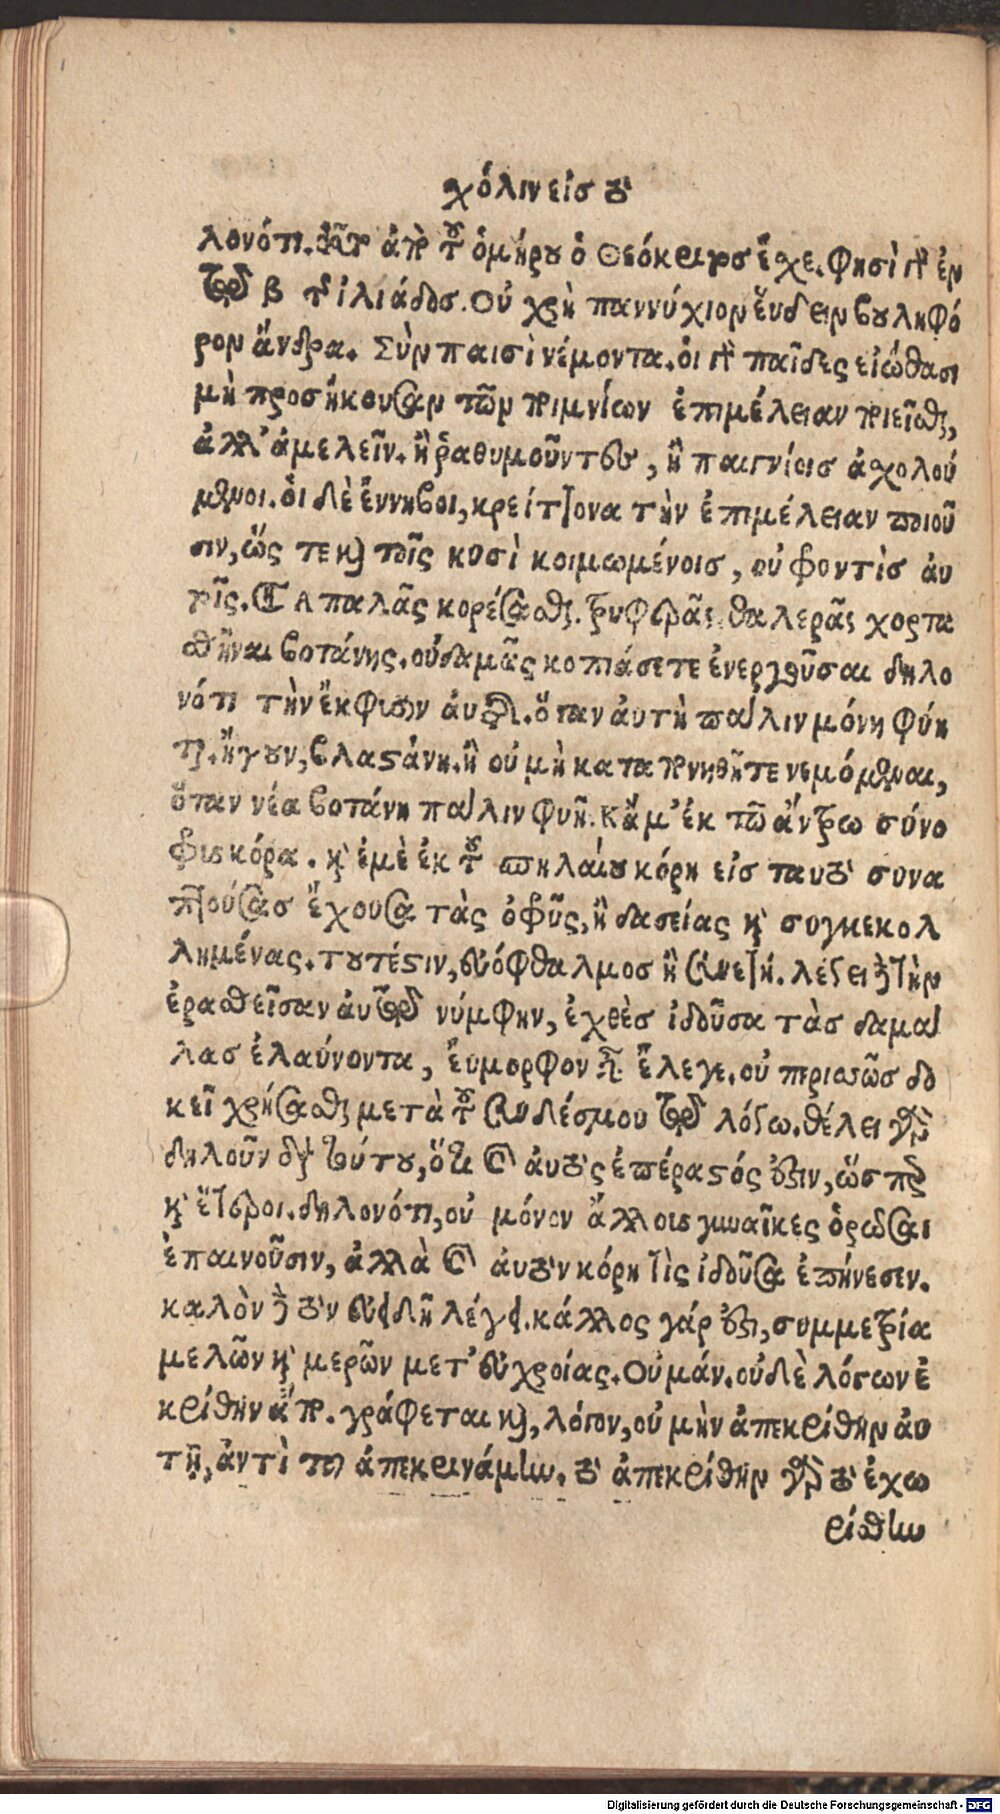 χόλιν εἰσ τὸ
λονότι. τοῦτο ἀπὸ τοῦ ὁμήρου ὁ Θεόκριτοσ ἔχε. φησὶ γὰρ ἐν
τῶ β τῆς ἰλιάδοσ. Οὐ χρὴ παννύχιον εὕδειν βουληφό
ρον ἄνδρα. Σὺν παισὶ νέμοντα. ὁι γὰρ παῖδες εἰώθασι
μὴ προσήκουσαν τῶν ποιμνίων ἐπιμέλειαν ποιεῖσθαι,
ἀλλ' ἀμελεῖν. ἢ ῥαθυμοῦντες, ἢ παιγνίοισ ἀχολού
μενοι. ὁι δὲ ἔννηβοι, κρείττονα τὴν ἐπιμέλειαν ποιοῦ
σιν, ὥς τε καὶ τοῖς κυσὶ κοιμωμένοισ, οὐ φροντὶσ ἀυ
τοῖς. Τᾶς ἁπαλᾶς κορέσασθαι. τρυφερᾶς θαλερᾶς χορτα
σθῆναι βοτάνης. οὐδαμῶς κοπιάσετε ἐνεργοῦσαι δηλο
νότι τὴν ἔκφυσιν ἀυτῆς. ὅταν ἀυτὴ πάλιν μόνη φύη
ται. ἤγουν, βλαστάνη. ἢ οὐ μὴ καταπονηθῆτε νεμόμεναι,
ὅταν νέα βοτάνη πάλιν φυῆ. Κἄμ' ἐκ τῶ ἄντρω σύνο
φρυς κόρα. καὶ ἐμὲ ἐκ τοῦ σπηλαίου κόρη εἰσ ταυτὸ συνα
πτούσασ ἔχουσα τὰς ὀφρῦς, ἢ δασείας καὶ συγκεκολ
λημένας. τουτέστιν, εὐόφθαλμοσ ἢ συνετή. λέγει δὲ τὴν
ἐρασθεῖσαν ἀυτῶ νύμφην, ἐχθὲσ ἰδοῦσα τὰσ δαμά
λασ ἐλαύνοντα, ἔυμορφον εἶναι ἔλεγε. οὐ περισσῶσ δο
κεῖ χρήσασθαι μετὰ τοῦ συνδέσμου τῶ λόγω. θέλει γὰρ
δηλοῦν διὰ τούτου, ὅτι καὶ ἀυτὸς ἐπέραστός ἐστιν, ὥσπερ
καὶ ἕτεροι. δηλονότι, οὐ μόνον ἄλλοις γυναῖκες ὁρῶσαι
ἐπαινοῦσιν, ἀλλὰ καὶ ἀυτὸν κόρη τὶς ἰδοῦσα ἐπήνεσεν.
καλὸν δὲ τὸν εὐειδῆ λέγει. κάλλος γάρ ἐστι, συμμετρία
μελῶν καὶ μερῶν μετ' εὐχροίας. Οὐ μάν. οὐδὲ λόγων ἐ
κρίθην ἄπο. γράφεται καὶ, λόγον, οὐ μὴν ἀπεκρίθην ἀυ
τῆ, ἀντὶ τοῦ ἀπεκρινάμην. τὸ ἀπεκρίθην γὰρ τὸ ἐχω
ρίσθην